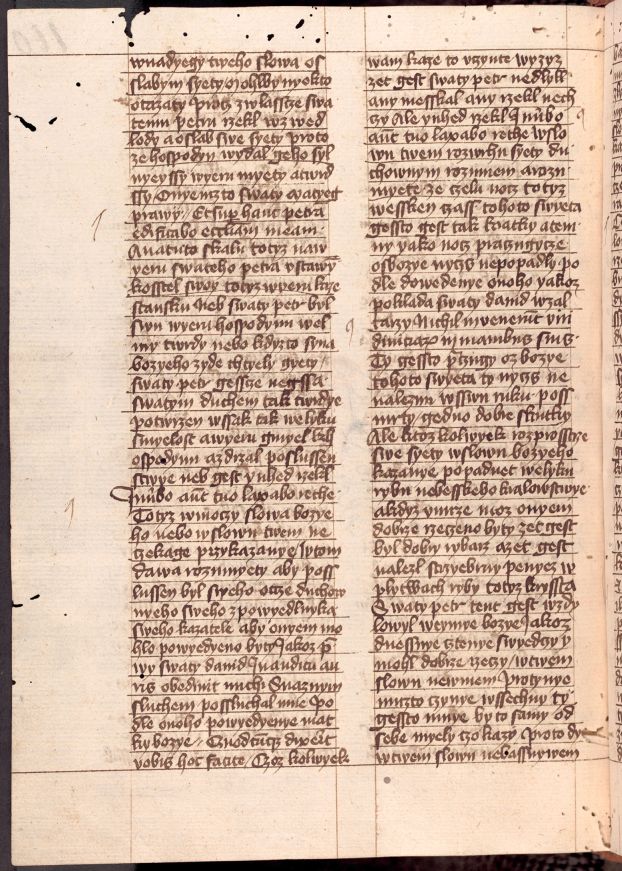 wnadyegy tweho slowa os
slabym syety o mohlby nyekto
otazaty Procz zwlasscze swa
temu petru rzekl wz wed
lody a oslab swe syety proto
ze hospodyn wydal geho syl
nyeyssy wyeru myety a twrd
ssy O nyemzto swaty Matyeg
prawy Et super hanc petra
edificabo eccliam meam
A na tuto skalu totyz na w
yeru swateho petra vstawy
kosstel swoy totyz wyeru krze
stansku Neb swaty petr byl
swu wyeru hospodynu wel
my twrdy nebo kdyzto syna
bozyeho zyde chtyely gyety
swaty petr gesscze
swatym duchem tak twrdye
potwrzen wssak tak weliku
smyelost a wyeru gmyel k h
ospodynu az drzal poslussen
stwye neb gest ynhed rzekl
In ubo aut tuo laxabo rethe
Totyz w moczy slowa bozye
ho nebo w slowu twem ne
czekage przykazanye W tom
dawa rozumyety aby poss
lussen byl sweho otcze duchow
nyeho sweho zpowyednyka
sweho kazatele aby o nyem mo
hlo powyedyeno byty Jakoz p
wy swaty dawid In auditu au
ris obediuit michi S uaznym
sluchem possluchal mne Po
dle onoho powyedyenye mat
ky bozye Quodcuq dixerit
vobis hoc facite Czoz kolwyek
wam kaze to vczynte wyzyz
zet gest swaty petr nedlyl
any messkal any rzekl nech
czy Ale ynhed rzekl In ubo
aut tuo laxabo rethe W slo
wu twem rozwrhu syety du
chownym rozumem a rozu
myete ze czelu nocz totyz
wessken czass tohoto swyeta
gessto gest tak kratky a tem
ny yako nocz praczugycze
o sbozye nyczs nepopadly po
dle dowedenye onoho yakoz
poklada swaty dawid w zal
tarzy Nichil inuenerut viri
diuitiaro in manibus suis
Ty gessto praczugy o sbozye
tohoto swyeta ty nyczs ne
naleznu w swu ruku poss
mrty gedno dobre skutky
Ale ktoz kolwyek rozprossrze
swe syety w slowu bozyeho
kazanye popadnet welyku
rybu nebesskeho kralowstwye
a kdyz vmrze moz o nyem
dobrze rzeczeno byty zet gest
byl dobry rybarz a zet gest
nalezl strzyebrny penyez w
plytwach ryby totyz krysta
Swaty petr tent gest wzdy
lowyl we gmye bozye Jakoz
dnessnye cztenye swyedczy y
mohl dobrze rzeczy W twem
slowu ne w mem Proty nye
muzto czynye wssechny ty
gessto mnye by to samy od
sebe myely czo kazy Proto dye
w twem slowu neb a ssurwem